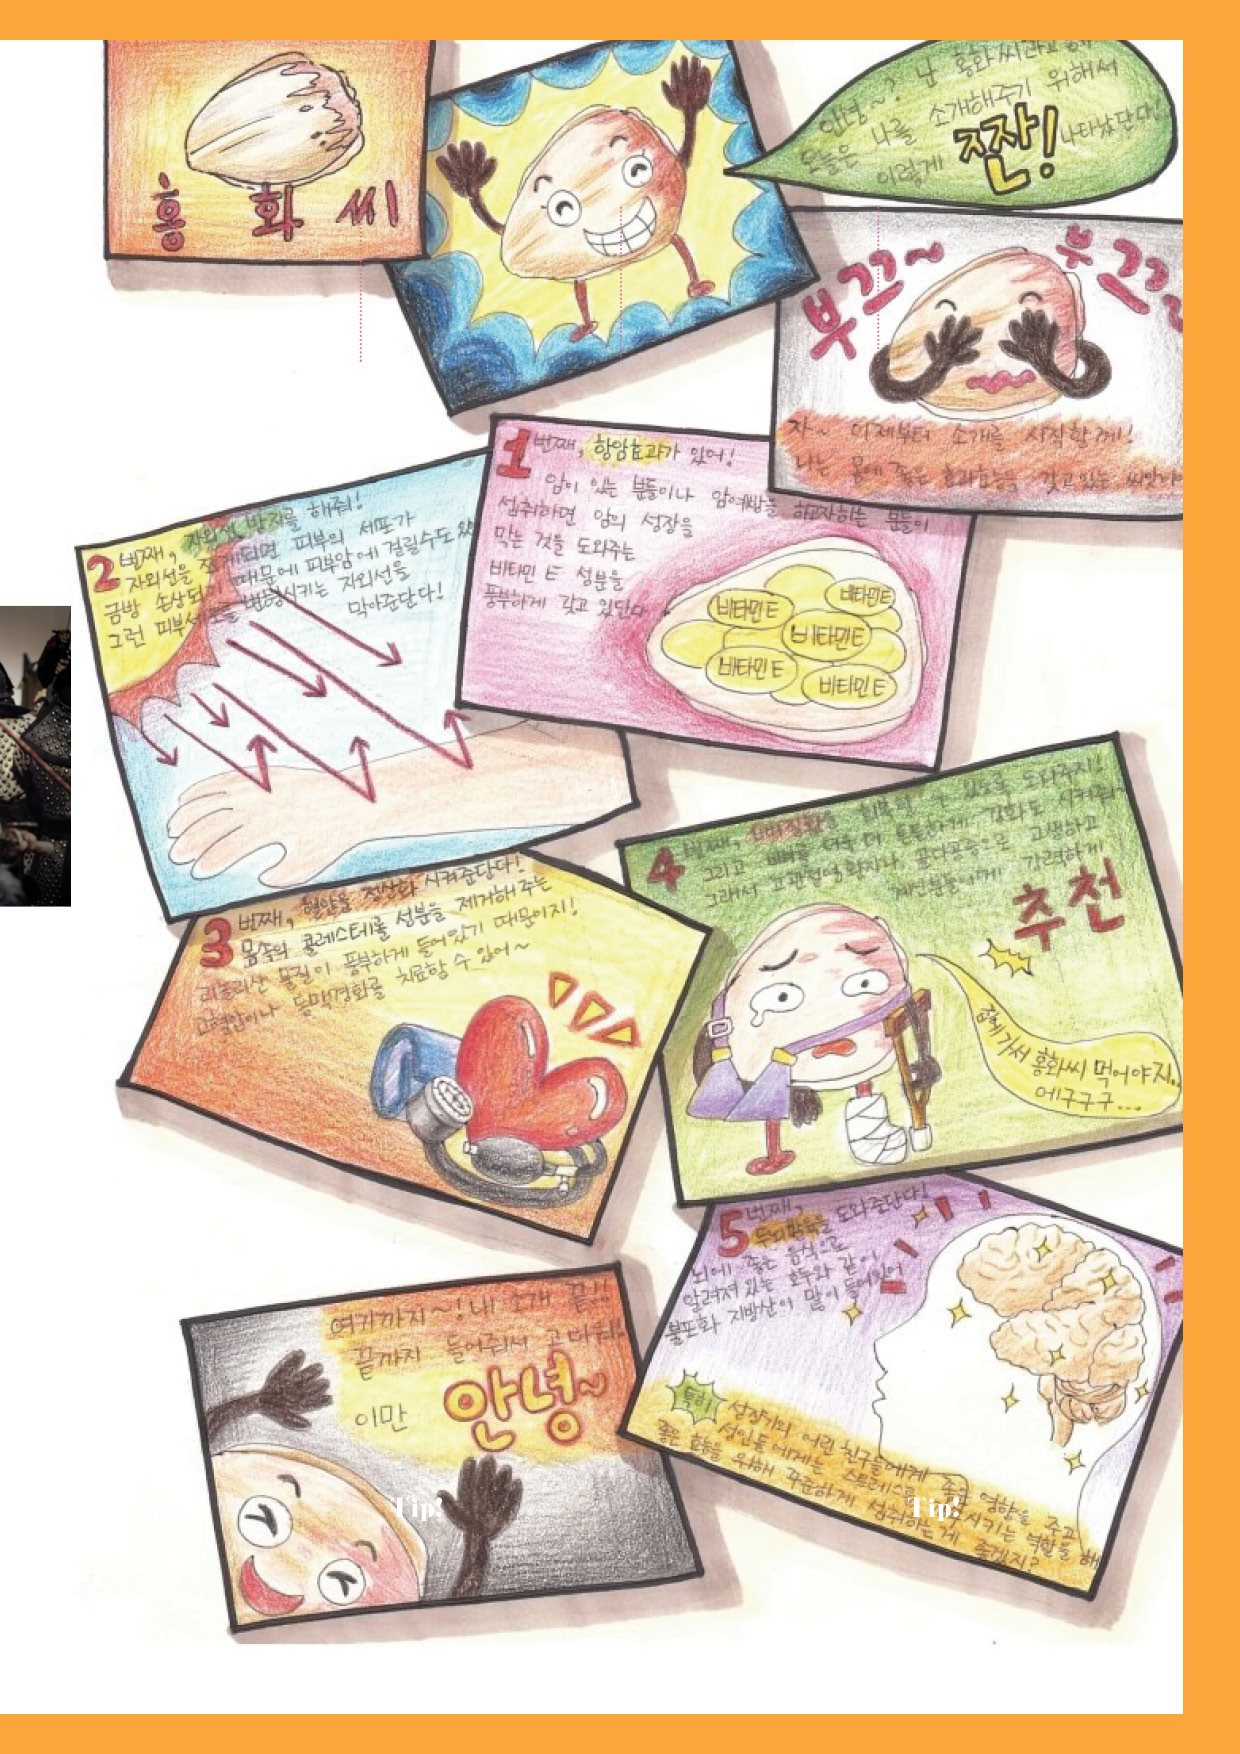 홍화씨
안녕~? 난 홍화씨라고 해
오늘은 나를 소개해주기 위해서
이렇게 짠! 나타났단다!
부끄~ 부끄
자~ 이제부터 소개를 시작할께!
나는 몸에 좋은 효과효능을 갖고있는 씨앗이야
1번째, 항암효과가 있어!
암이 있는 분들이나 암예방을 하고자하는 분들이
섭취하면 암의 성장을
막는 것을 도와주는
비타민 E 성분을
풍부하게 갖고 있단다
비타민E
비타민E
비타민E
비타민E
비타민E
2번째, 자외선 방지를 해줘!
자외선을 쬐게되면 피부의 세포가
금방 손상되기 때문에 피부암에 걸릴수도 있
그런 피부세포를 변형시키는 자외선을
막아준단다!
3번째, 혈압을 정상화 시켜준단다!
몸속의 콜레스테롤 성분을 제거해주는
리놀리산 물질이 풍부하게 들어있기 때문이지!
고혈압이나 동맥경화를 치료할 수 있어~
4번째, 회복할 수 있도록 도와주지!
그리고 뼈를 더욱 더 튼튼하게 강화도 시켜줘
그래서 고관절염환자나 골다공증으로 고생하고
계신분들에게 강력하게
추천
얼렁가서 홍화씨 먹어야지.
에구구구...
5번째,
두뇌발육을 도와준단다!
뇌에 좋은 음식으로
알려져 있는 호두와 같이
불포화 지방산이 많이 들어있어
특히! 성장기의 어린 친구들에게 좋은 영향을 주고
성인들에게는 스트레스를 시키는 역할을 해
좋은 효능을 위해 꾸준하게 섭취하는게 좋겠지?
여기까지~! 내 소개 끝!!
끝까지 들어줘서 고마워!
이만 안녕~
Tip!
Tip!